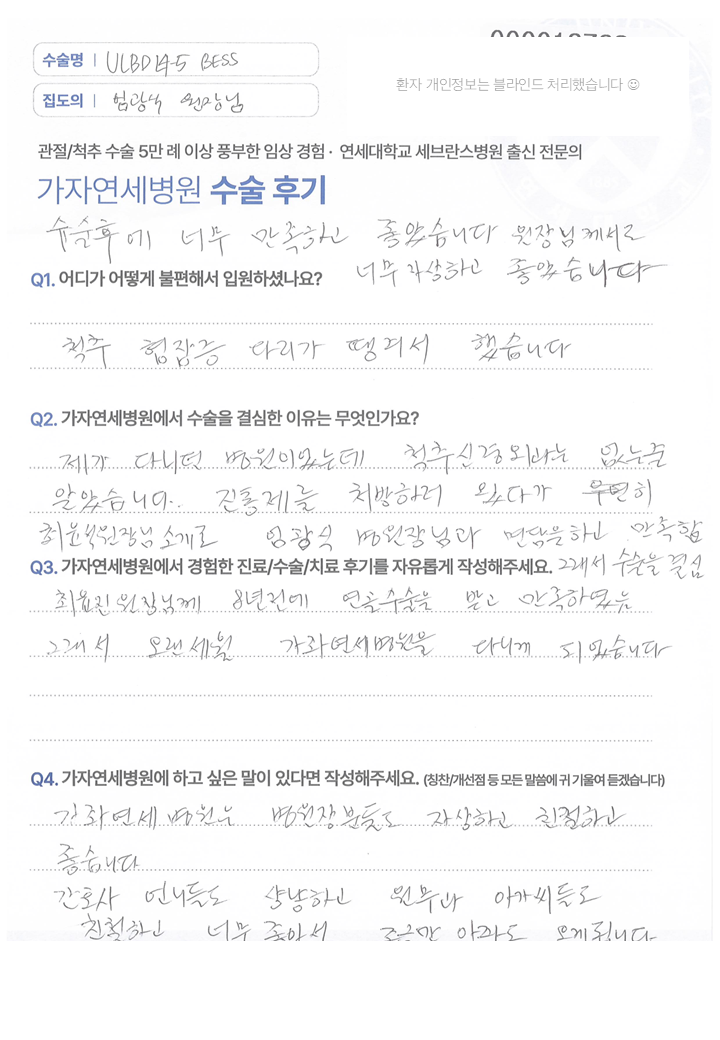 수술명 | ULBD L4-5 BESS
환자 개인정보는 블라인드 처리했습니다 ☺
집도의 | 임광식 원장님
관절/척추 수술 5만 례 이상 풍부한 임상 경험 · 연세대학교 세브란스병원 출신 전문의
가자연세병원 수술 후기
수술후에 너무 만족하고 좋았습니다 원장님께서도
너무 자상하고 좋았습니다
Q1. 어디가 어떻게 불편해서 입원하셨나요?
척추 협잡증 다리가 땡겨서 했습니다
Q2. 가자연세병원에서 수술을 결심한 이유는 무엇인가요?
제가 다니던 병원이있는데 척추신경외과는 없는줄
알았습니다. 진통제를 처방하러 왔다가 우연히
최윤석원장님소개로 임광식 병원장님과 면담을하고 만족함
그래서 수술을 결심
Q3. 가자연세병원에서 경험한 진료/수술/치료 후기를 자유롭게 작성해주세요.
최윤진원장님께 8년전에 연골수술을 받고 만족하였음
그래서 오랜세월 가좌연세병원을 다니게 되었습니다
Q4. 가자연세병원에 하고 싶은 말이 있다면 작성해주세요. (칭찬/개선점 등 모든 말씀에 귀 기울여 듣겠습니다)
가좌연세병원은 병원장분들도 자상하고 친절하고
좋습니다
간호사 언니들도 상냥하고 원무과 아가씨들도
친절하고 너무 좋아서 조금만 아파도 오게됩니다